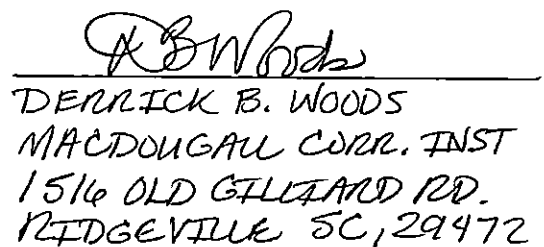 DB Woods
DERRICK B. WOODS
MACDOUGALL CORR. INST
1516 OLD GILLIARD RD.
RIDGEVILLE SC, 29472